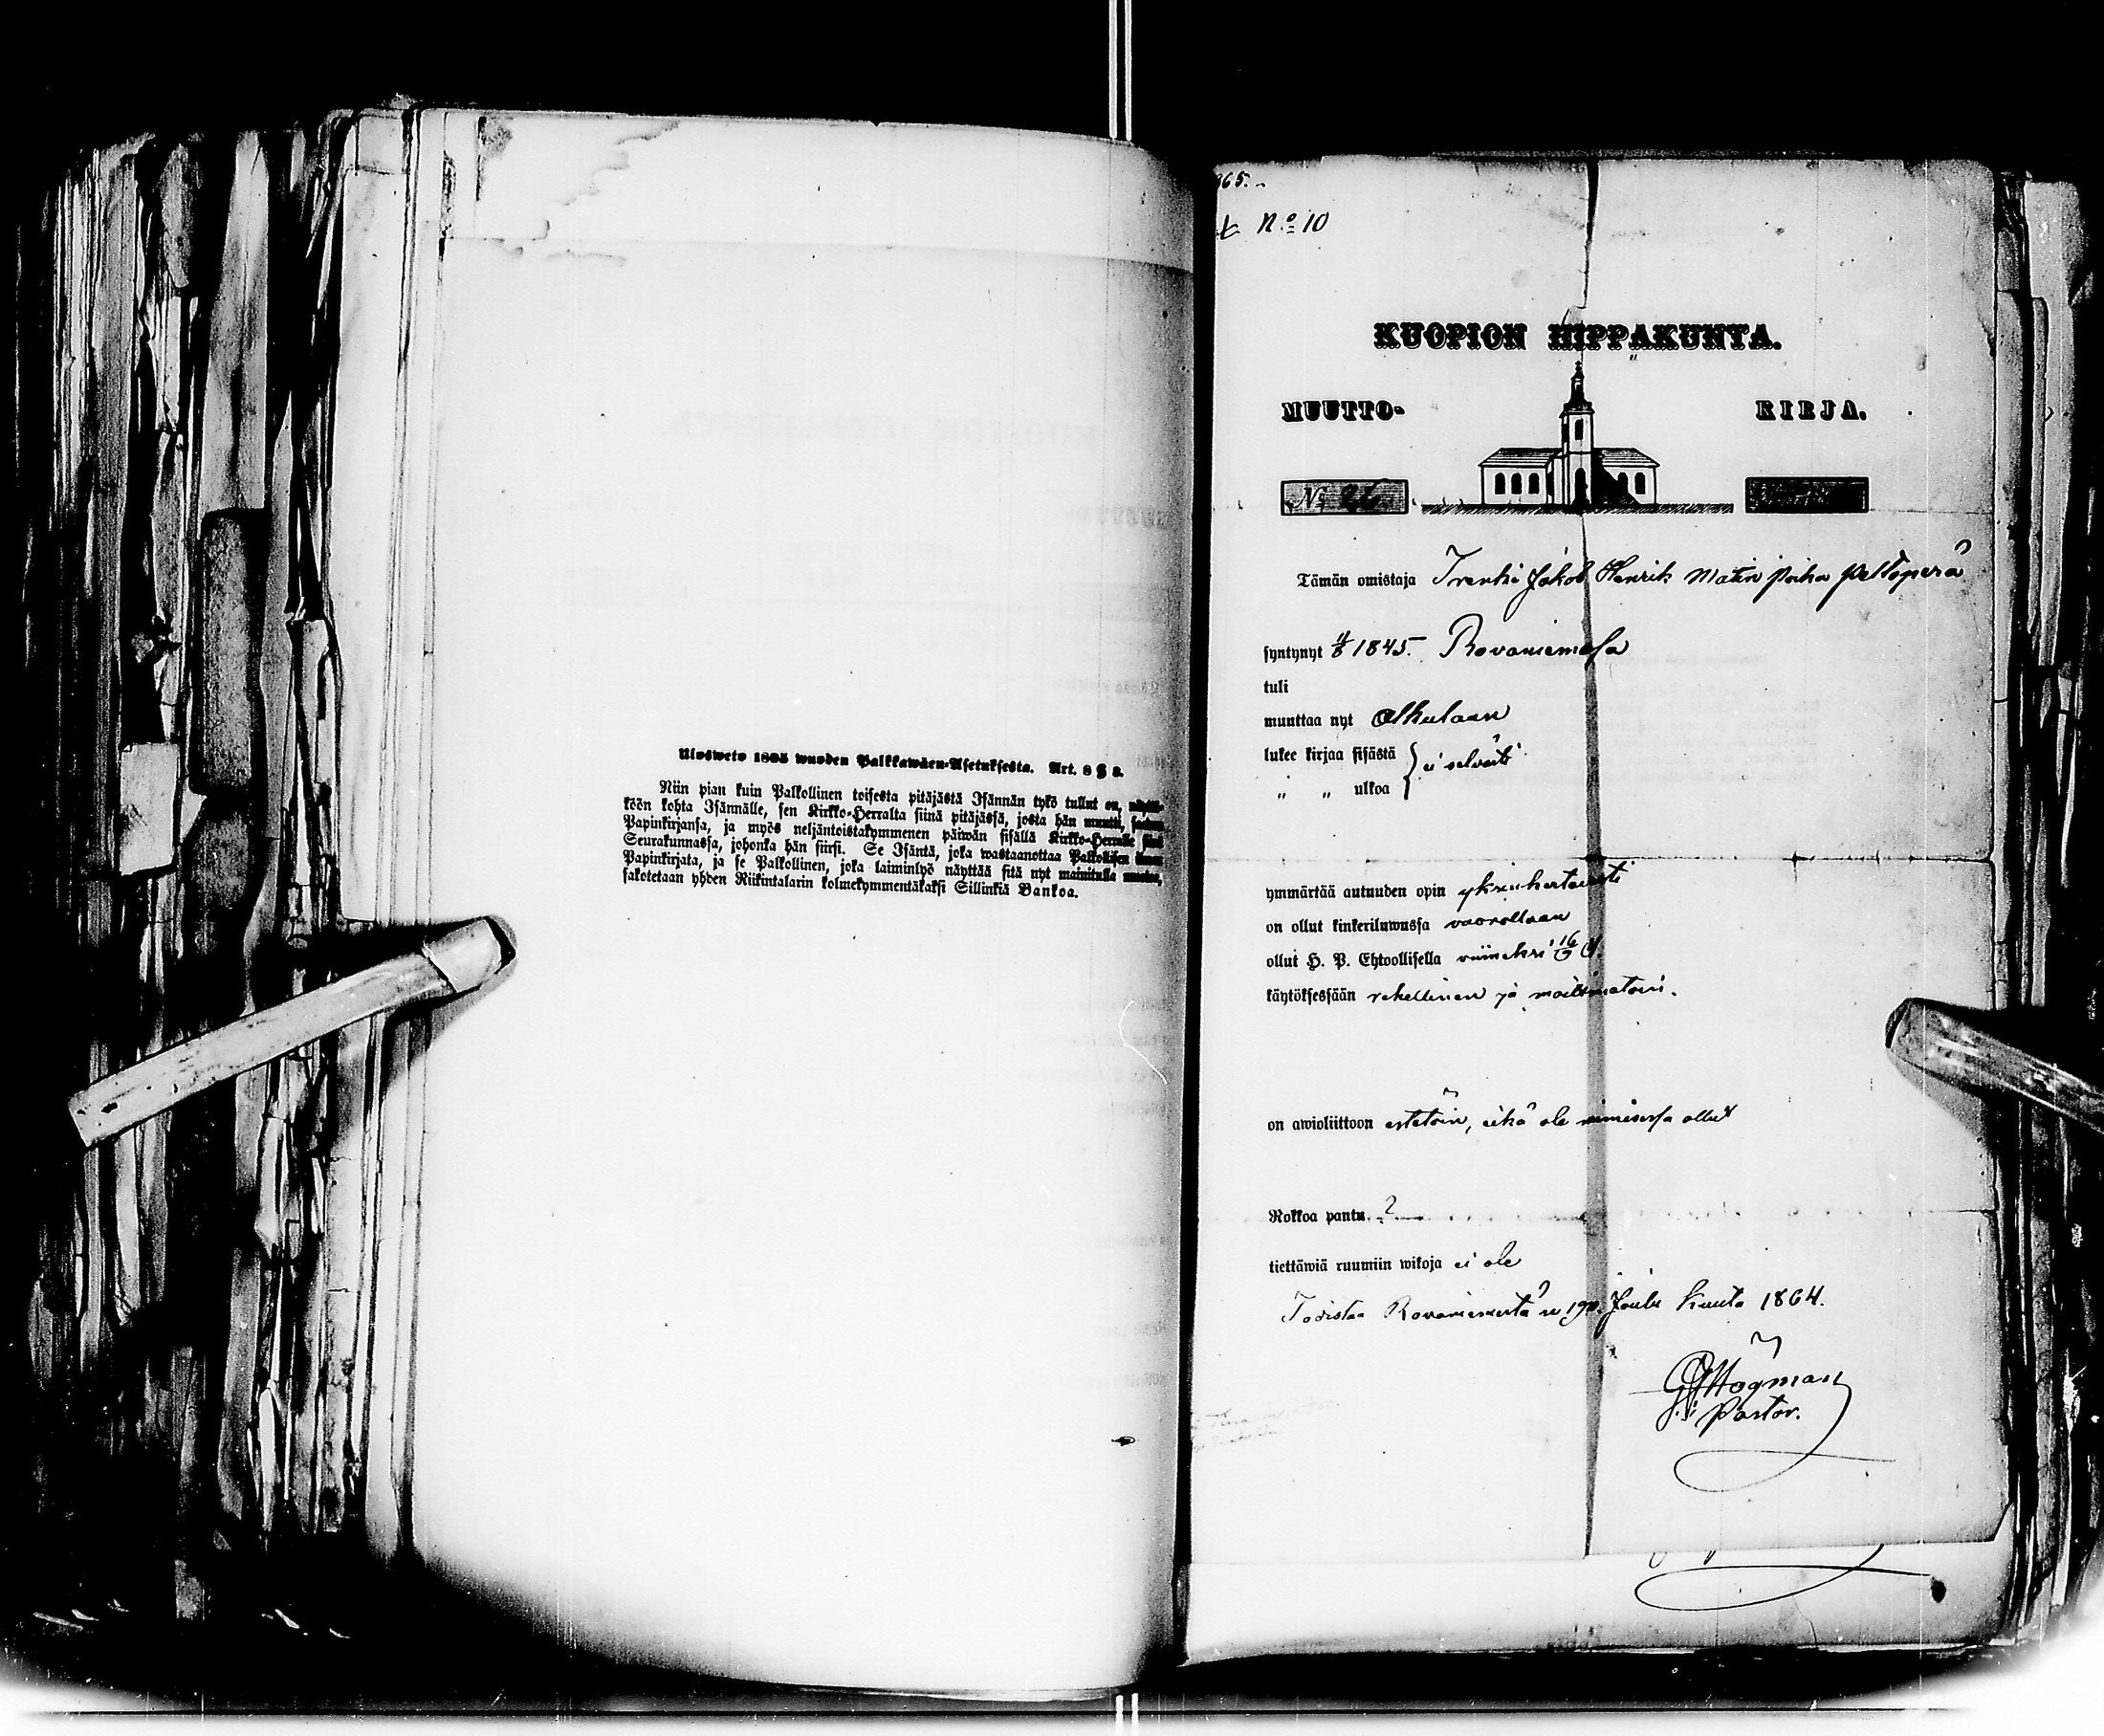 Ulosweto 1805 wuoden Palkkawäen-Asetuksesta. Art. 8 § 3.
Niin pian kuin Palkollinen toisesta pitäjästä Isännän tykö tullut on,
köön kohta Isännälle, sen Kirkko-Herralta siinä pitäjässä, josta hän muutti,
Papinkirjansa, ja myös neljäntoistakymmenen päiwän sisällä Kirkko-Herralle
Seurakunnassa, johonka hän siirsi. Se Isäntä, joka wastaanottaa Palkollisen
Papinkirjata, ja se Palkollinen, joka laiminlyö näyttää sitä nyt mainitulla
sakotetaan yhden Riikintalarin kolmekymmentäkaksi Sillinkiä Bankoa.
65.
No 10
KUOPION HIPPAKUNTA.
MUUTTO- KIRJA.
No
Tämän omistaja Trenki Jakob Henrik Matin poika Peltoperä
syntynyt 1845. Rovaniemessa
tuli
muuttaa nyt Alkulaan
lukee kirjaa sisästä } ei selvästi
„ „ ulkoa
ymmärtää autuuden opin yksinkertaisesti
on ollut kinkeriluwussa vuorollaan
ollut H. P. Ehtoollisella viimeksi 16
käytöksessään rehellinen ja moittimatoin.
on awioliittoon estetöin, eikä ole nimisessa ollut
Rokkoa pantu ?
tiettäwiä ruumiin wikoja ei ole
Todistaa Rovaniemestä 19 Joulu kuuta 1864.
Högman
Pastor.